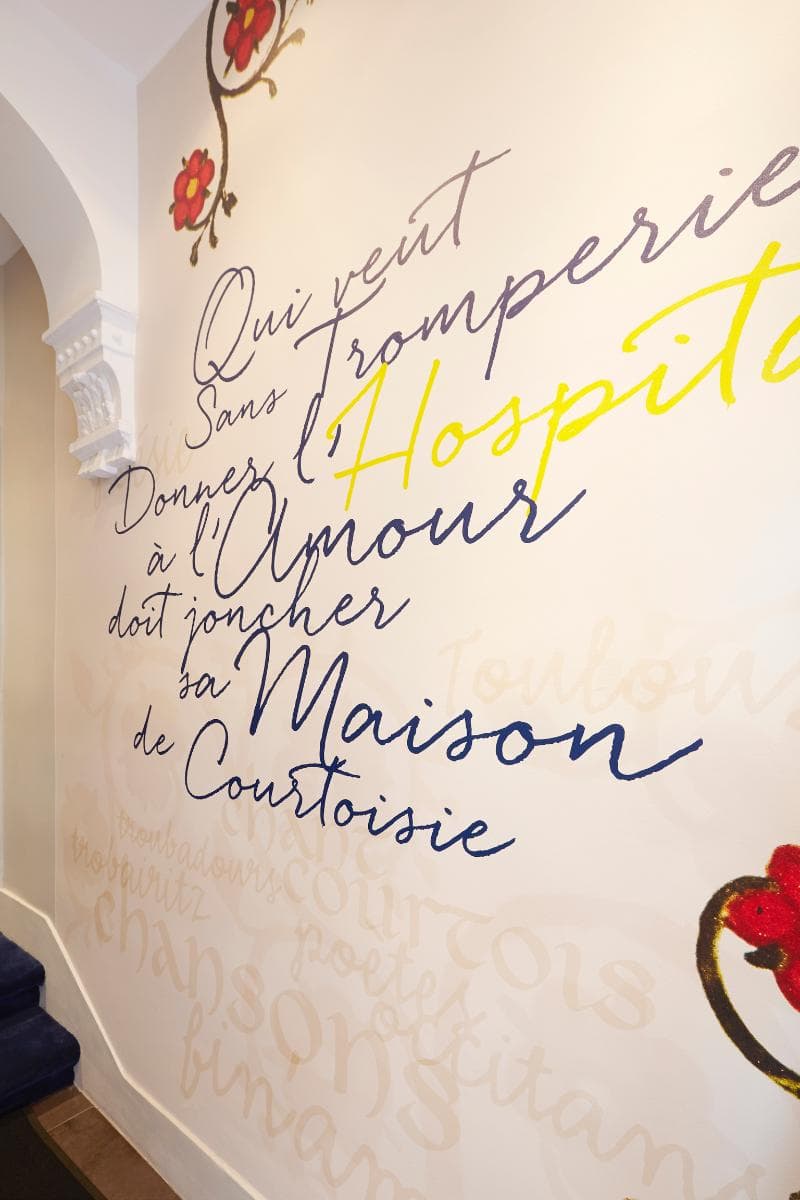 Qui veut
Sans Tromperie
Donner l'Hospita
à l'Amour
doit joncher
sa Maison
de Courtoisie
Toulous
chant
troubadours
trobairitz
courtois
chansons
poètes
occitans